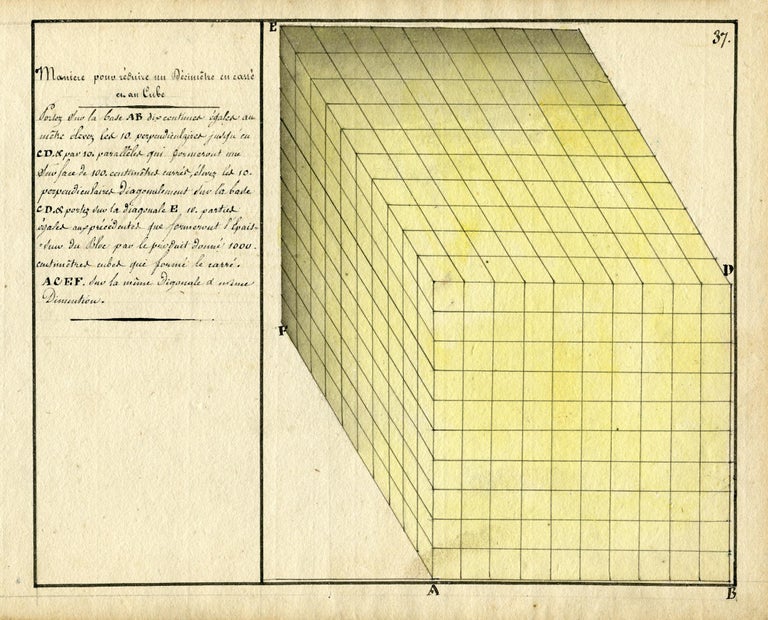 37.
Maniere pour réduire un Décimêtre en carré
et au Cube
Portez Sur la base AB dix centimes égales au
mêtre élevez les 10. perpendiculaires jusqu'en
C D. & par 10. parallèles qui formeront une
Surface de 100. centimêtres carrés, élevez les 10.
perpendiculaires Diagonalement Sur la base
C D. & portez Sur la diagonale E, 10. parties
égales aux précédentes que formeront l'Epais-
-seur du Bloc par le produit donné 1000.
centimêtres cubes que forme le carré.
A C E F. Sur la même Digonale et même
Dimention.
E
D
F
A
B